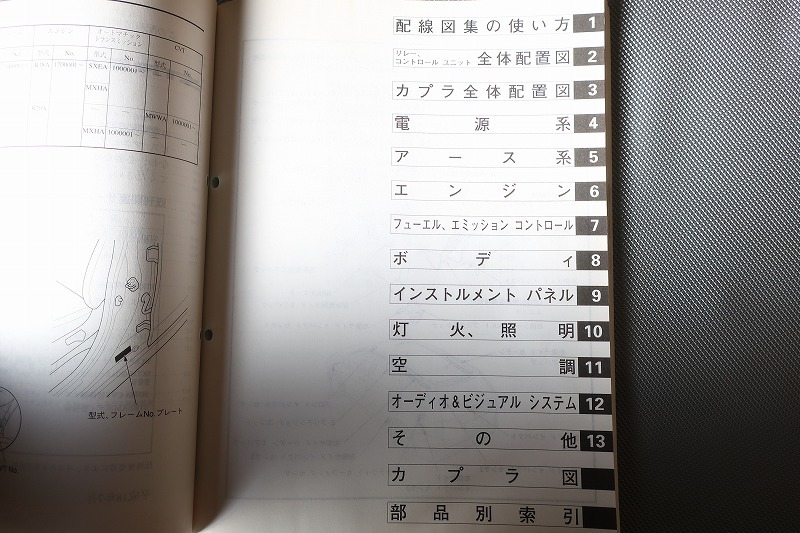 エンジン
オートマチック
トランスミッション
CVT
型式 No. 型式 No. 型式 No.
SXEA 1000001~
MXHA
MWWA 1000001~
MXHA 1000001~
型式、フレームNo.プレート
配線図集の使い方 1
リレー、
コントロール ユニット 全体配置図 2
カプラ全体配置図 3
電源系 4
アース系 5
エンジン 6
フューエル、エミッション コントロール 7
ボディ 8
インストルメント パネル 9
灯火、照明 10
空調 11
オーディオ&ビジュアル システム 12
その他 13
カプラ図
部品別索引